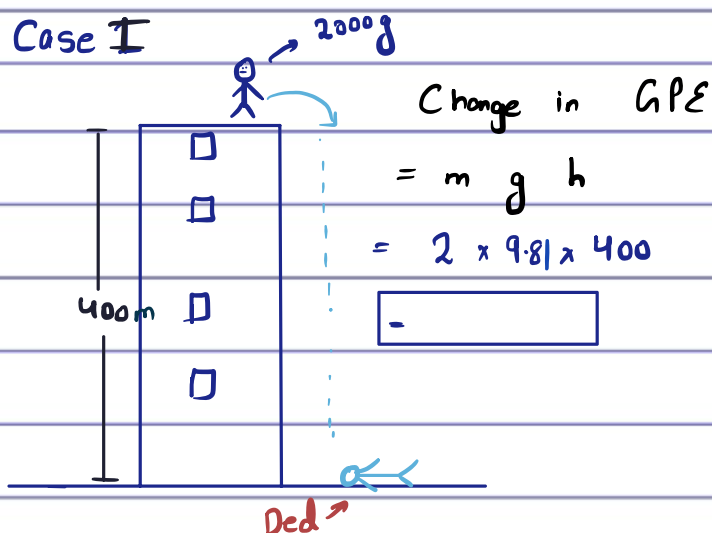 Case I
2000g
Change in GPE
= m g h
= 2 × 9.81 × 400
=
400m
Ded